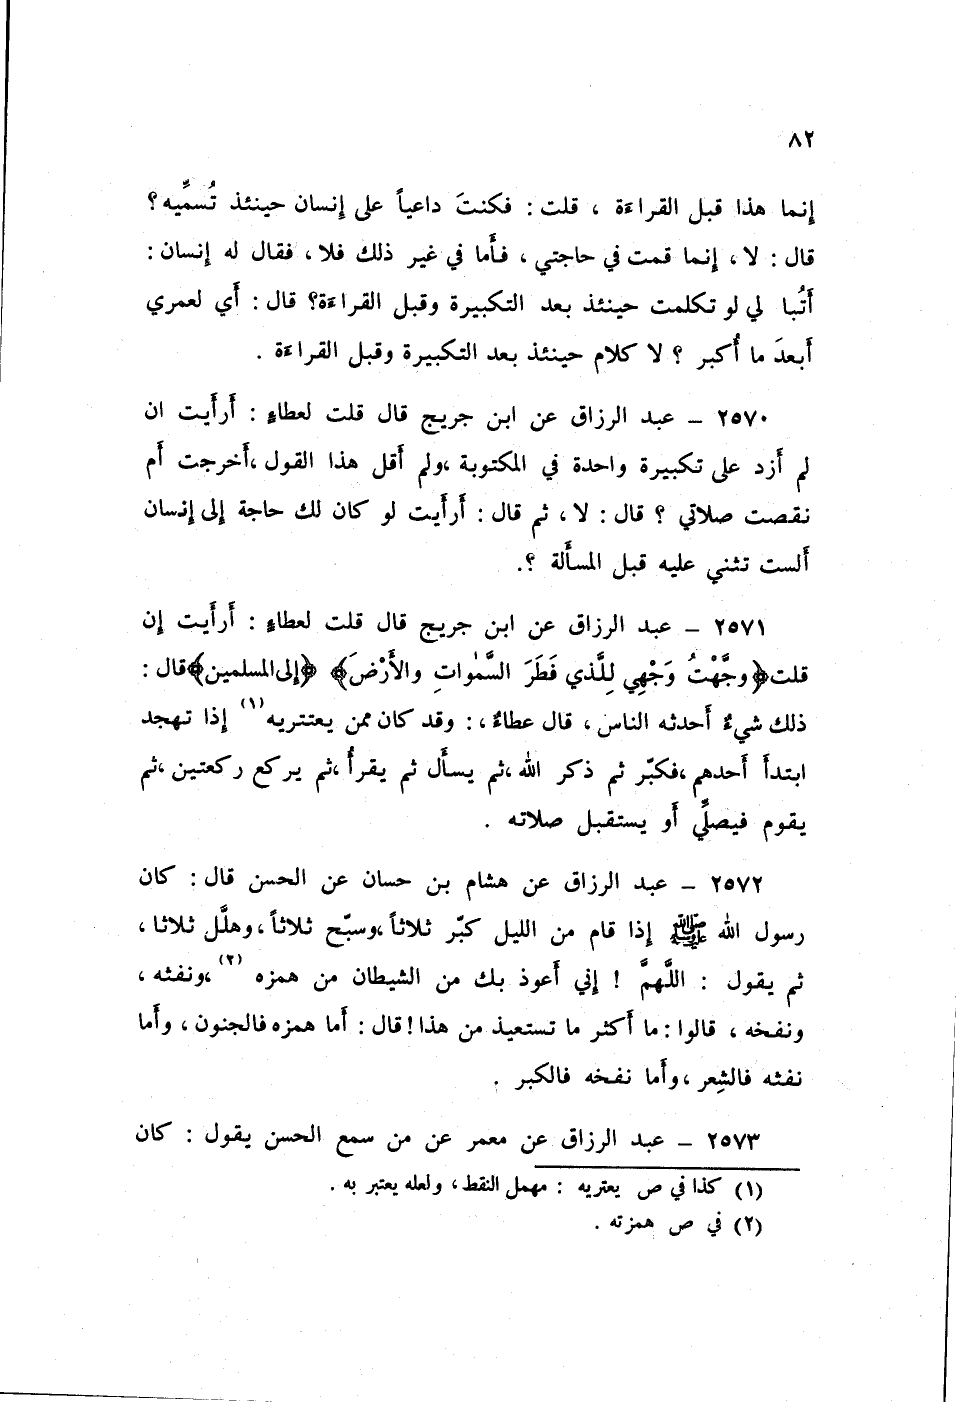 ٨٢
إنما هذا قبل القراءة ، قلت : فكنتَ داعياً على إنسان حينئذ تُسمِّيه؟
قال : لا ، إنما قمت في حاجتي ، فأما في غير ذلك فلا ، فقال له إنسان :
أتُبا لي لو تكلمت حينئذ بعد التكبيرة وقبل القراءة؟ قال : أي لعمري
أبعدَ ما أُكبر ؟ لا كلام حينئذ بعد التكبيرة وقبل القراءة .
٢٥٧٠ – عبد الرزاق عن ابن جريج قال قلت لعطاءٍ : أرأيت ان
لم أزد على تكبيرة واحدة في المكتوبة ،ولم أقل هذا القول ،أخرجت أم
نقصت صلاتي ؟ قال : لا ، ثم قال : أرأيت لو كان لك حاجة إلى إنسان
ألست تثني عليه قبل المسألة ؟.
٢٥٧١ – عبد الرزاق عن ابن جريج قال قلت لعطاءٍ : أرأيت إن
قلت ﴿وجَّهْتُ وَجْهِي لِلَّذي فَطَرَ السَّمٰواتِ والأَرْضَ﴾ ﴿إلى المسلمين﴾ قال :
ذلك شيءٌ أحدثه الناس ، قال عطاءٌ ،: وقد كان ممن يعتتريه (١) إذا تهجد
ابتدأ أحدهم ،فكبّر ثم ذكر الله ،ثم يسأل ثم يقرأُ ،ثم يركع ركعتين ،ثم
يقوم فيصلِّي أو يستقبل صلاته .
٢٥٧٢ – عبد الرزاق عن هشام بن حسان عن الحسن قال : كان
رسول الله ﷺ إذا قام من الليل كبّر ثلاثاً ،وسبّح ثلاثاً ، وهلَّل ثلاثا ،
ثم يقول : اللَّهمَّ ! إني أعوذ بك من الشيطان من همزه (٢) ،ونفثه ،
ونفخه ، قالوا : ما أكثر ما تستعيذ من هذا ! قال : أما همزه فالجنون ، وأما
نفثه فالشِعر ،وأما نفخه فالكبر .
٢٥٧٣ – عبد الرزاق عن معمر عن من سمع الحسن يقول : كان
(١) كذا في ص يعتريه : مهمل النقط ، ولعله يعتبر به .
(٢) في ص همزته .